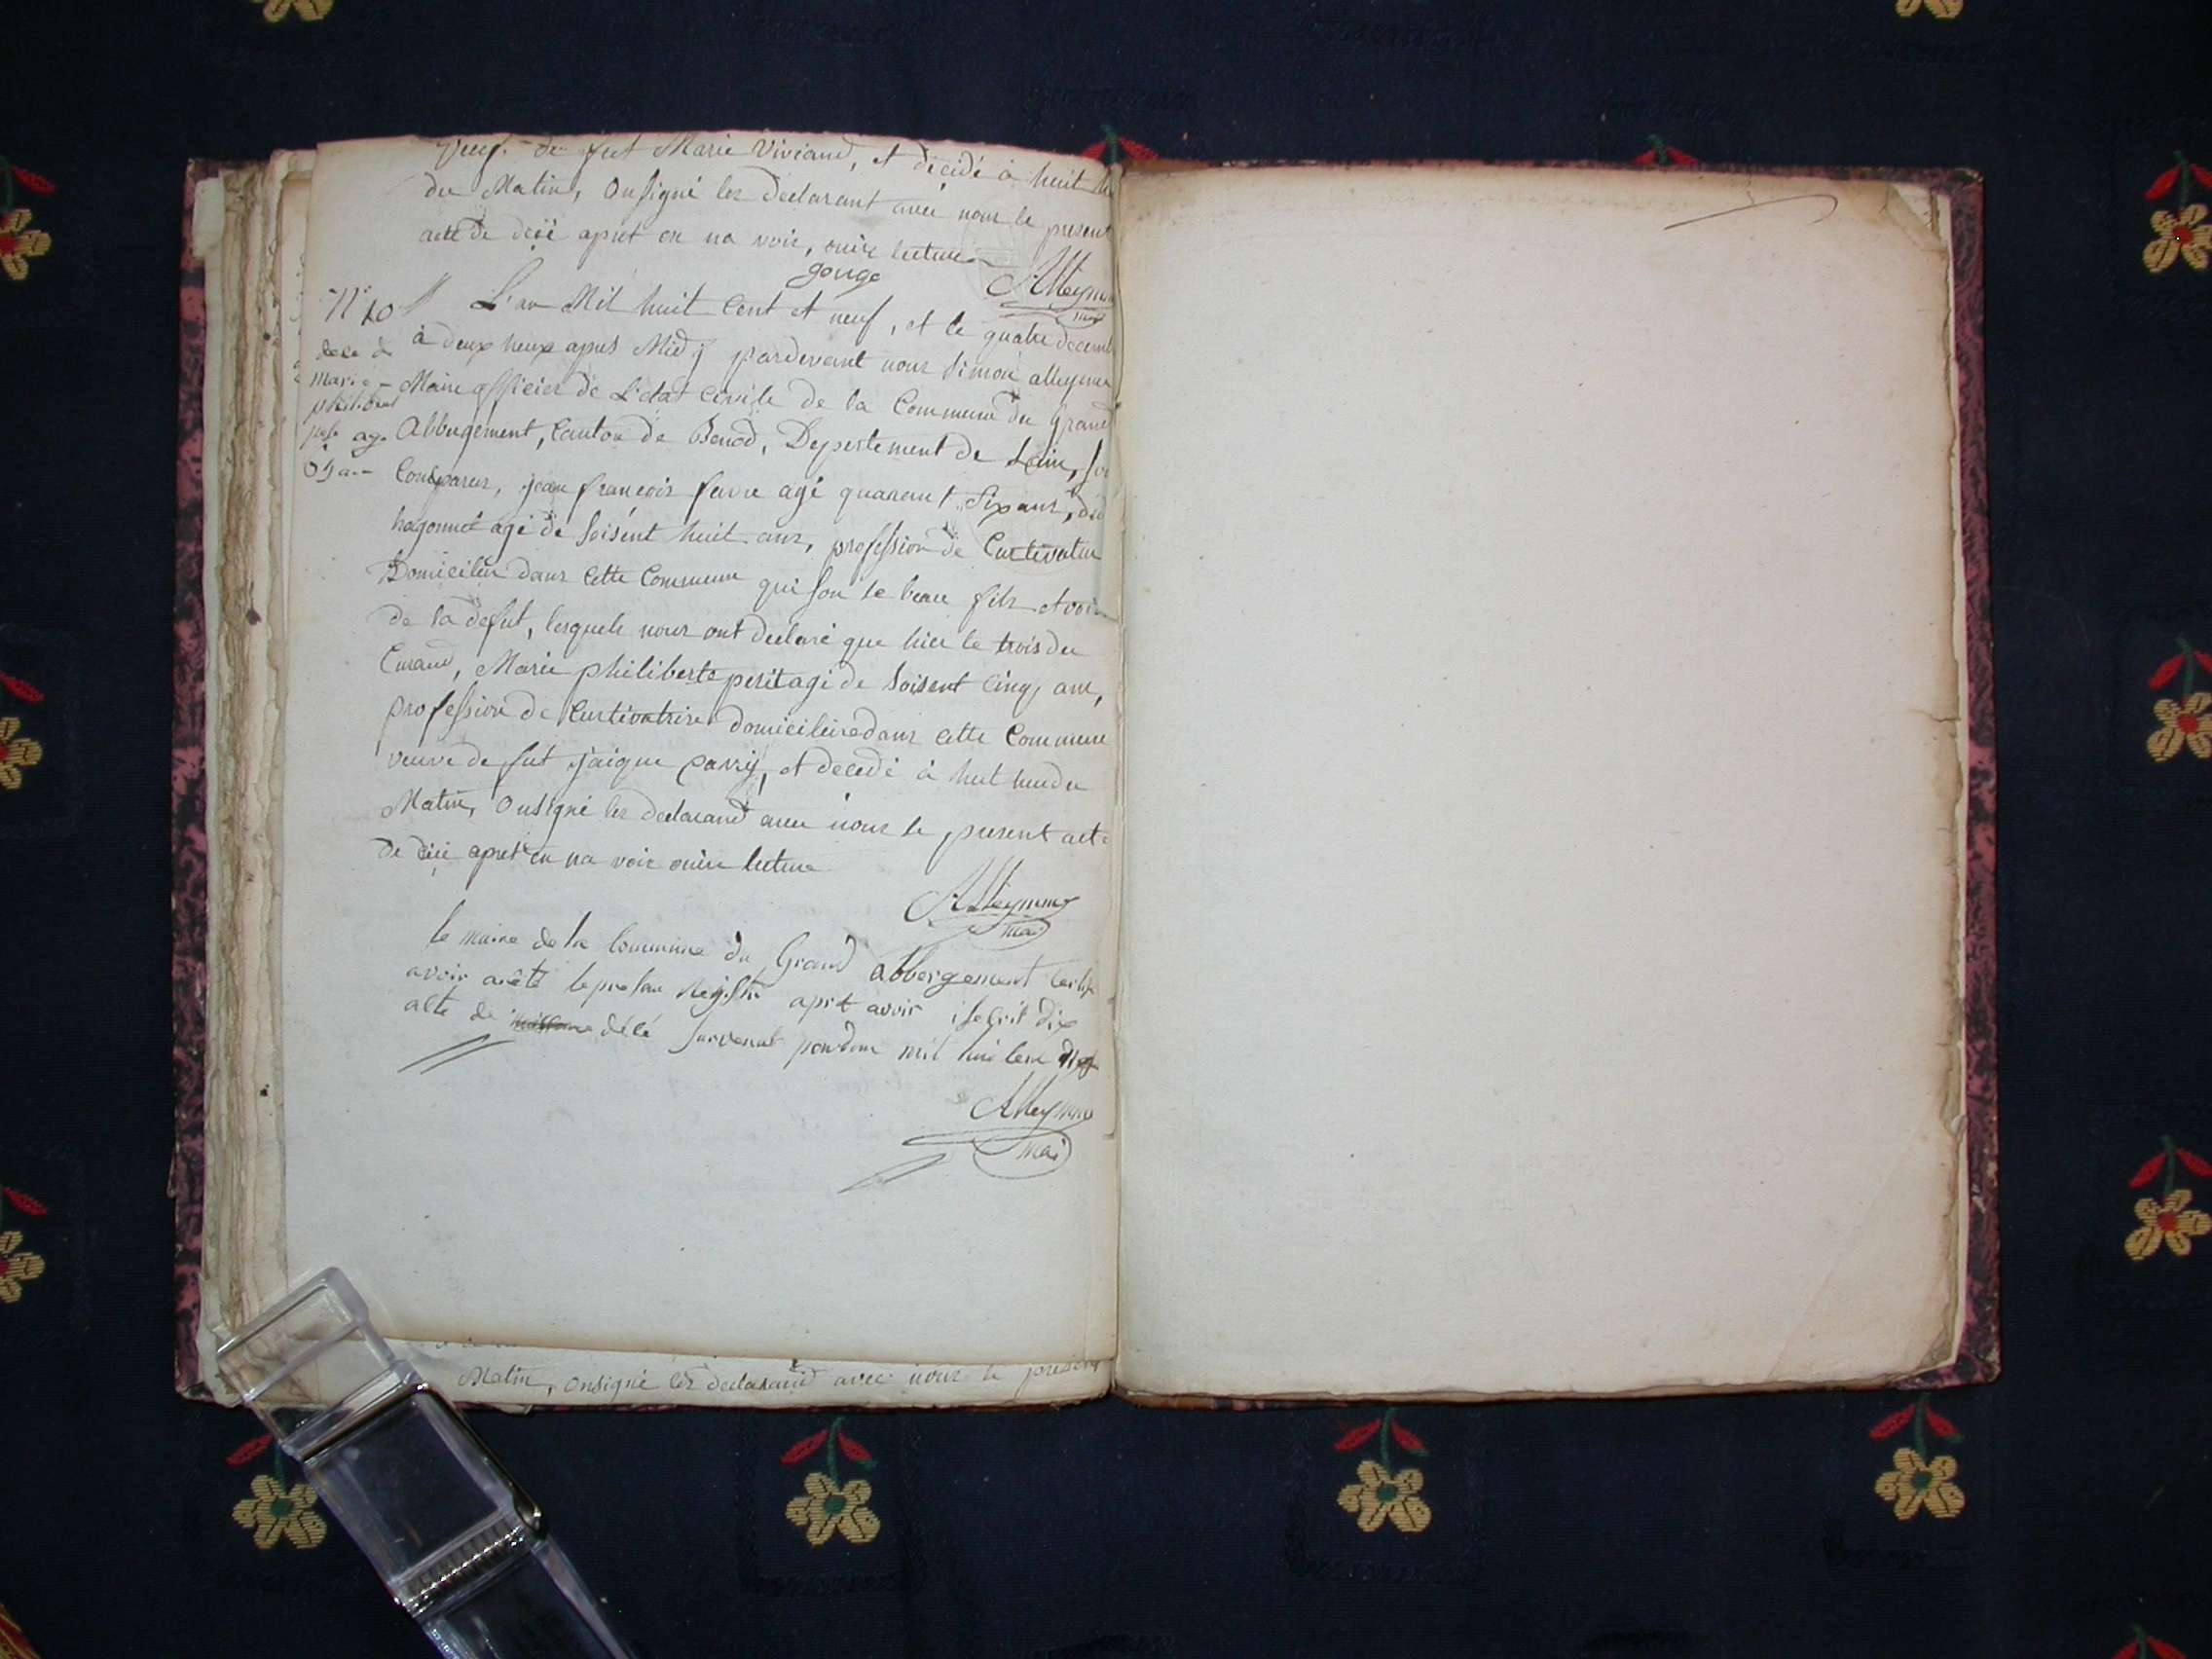 veuf de fut Marie Viviand, et décidé à huit
du Matin, Onsigné les declarant avec nous le present
acte de décé apret en na voir, ouire lecture
gouge Alleym
N° 10 L'an Mil huit Cent et neuf, et le quatre decemb
à deux heux apres Midj pardevant nous Simon alleyme
Maire officier de L'etat Civile de la Commune du Grand
Abbugement, Canton de Benod, Depertement de Lain,
Comparus, jean francois favre agé quarant Six ans,
hugonnet agé de Soisent huit ans, profession de Curtivateu
Domicilié dans Cette Commune qui son le beau fils et voi
de la defut, lesquels nous ont declaré que hier le trois du
Curand, Marie philiberte perit agé de Soisent Cinq ans,
profession de Curtivatrise domiciliée dans Cette Commune
veuve de fut jaique Carrij, et decedé à huit heu du
Matin, Onsigné les declarand avec nous le present acte
de décé apret en na voir ouire lecture
Marie
philibert
age
65 an
Alleymme
mai
le maire de la Commune du Grand abbergement Certif
avoir arêté le presen Registre apret avoir iscrit dix
alte de décé survenut pendan mil hui cen
Alleymme
mai
Matin, onsigné les declarand avec nous le present